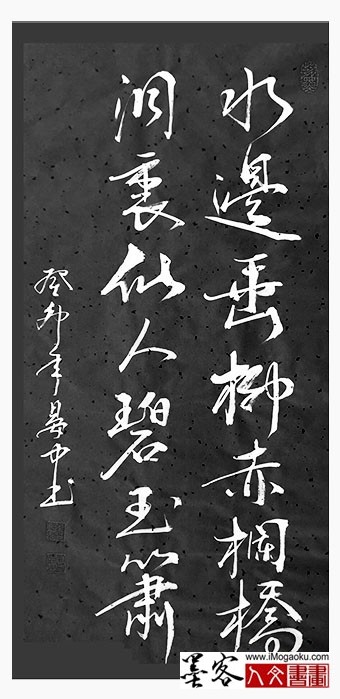 水邊垂柳赤欄橋
洞裏仙人碧玉簫
癸卯年晏中书
墨客
www.iMogaoku.com
人文書畫